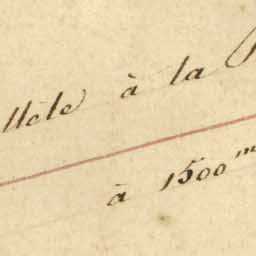 llèle à la
à 1500 m